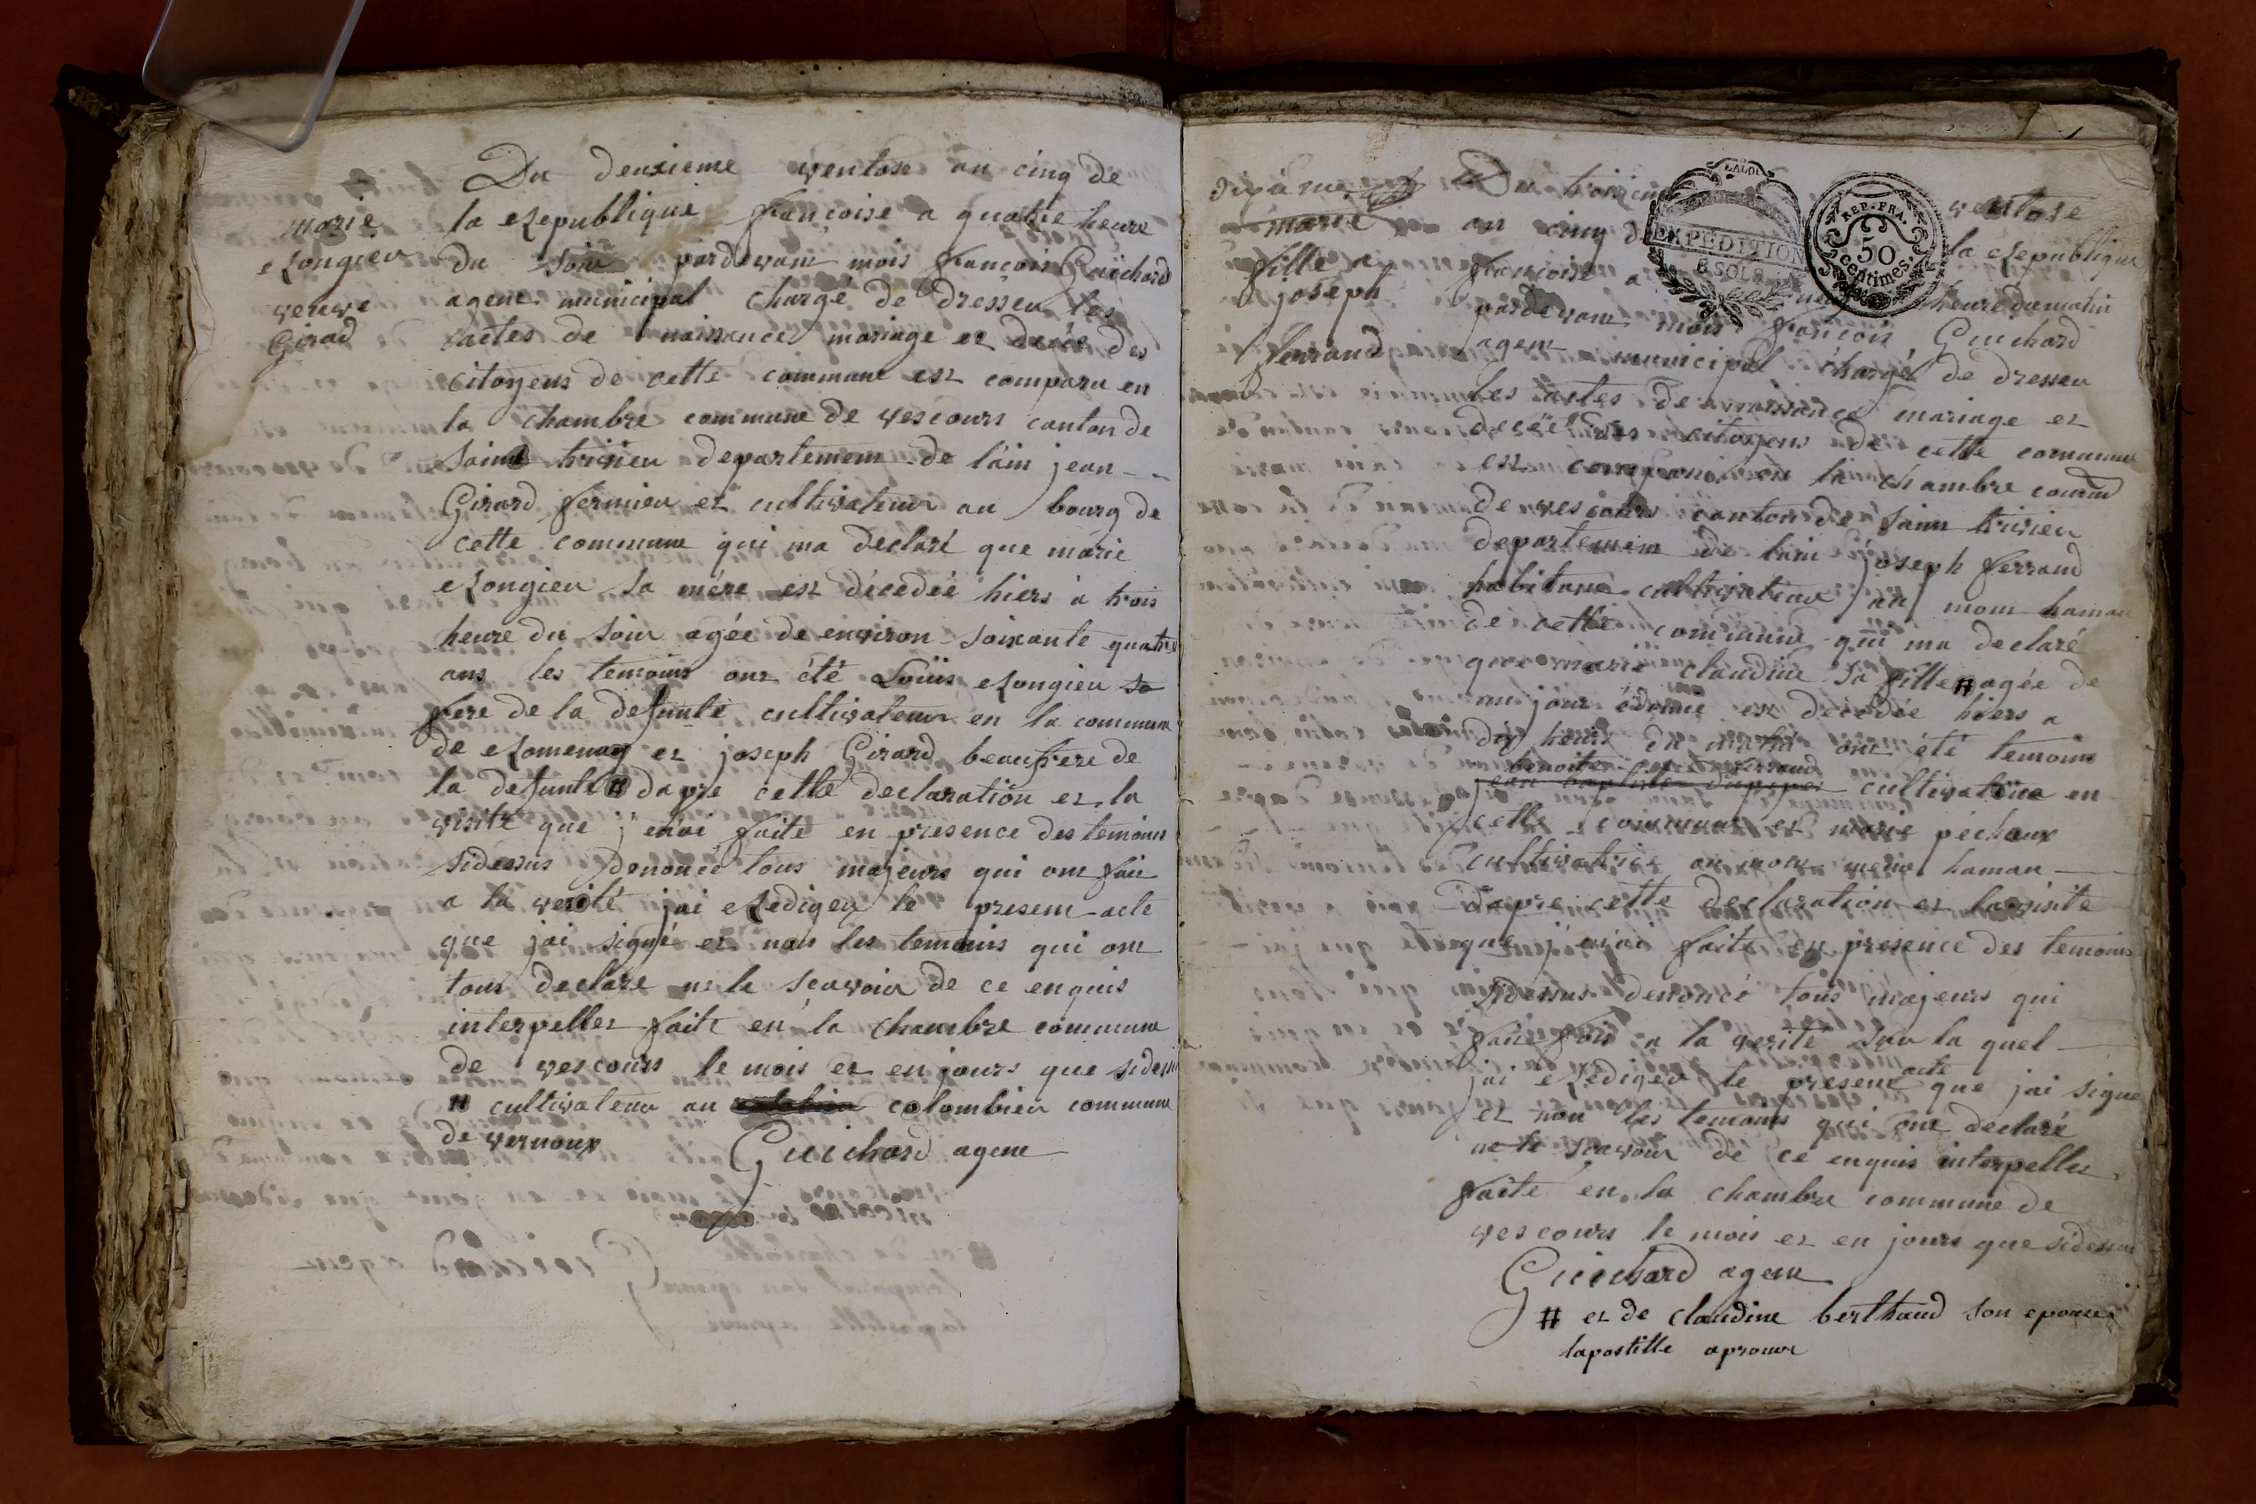 Du deuxieme ventose an cinq de
marie
Rongier
veuve
Girad
la Republique françoise a quatre heure
du soir pardevant mois françois Guichard
agent municipal chargé de dresser les
actes de naissance mariage et decée des
citoyens de cette commune est comparu en
la chambre commune de vescours canton de
Saint trivier departement de lain jean
Girard fermier et cultivateur au bourg de
cette commune qui ma declaré que marie
Rongier sa mére est décedéé hiers à trois
heure du soir agée de environ soixante quatre
ans les temoins ont été Loüis Rongier sa
frere de la defunte cultivateur en la commune
de Romenay et joseph Girard beaufrere de
la defunte # dapre cette declaration et la
visite que j'enai faite en presence des temoins
sidessus denoncé tous majeurs qui ont foit
a la verité jai Rediger le present acte
que jai signé et non les temoins qui ont
tous declare ne le scavoir de ce enquis
interpeller faite en la chambre commune
de vescours le mois et en jours que sidessu
# cultivateur au colombier commune
de vernoux
Guichard agent
marie
fille a
joseph
ferrand
Du troisieme ventose
an cinq de la Republique
françoise a heure du matin
pardevant mois françois Guichard
agent municipal chargé de dresser
les actes de naissance mariage et
decée des citoyens de cette commune
est comparu en la chambre comun
de vescours canton de saint trivier
departement de lain joseph ferrand
habitant cultivateur au mont haman
de cette commune qui ma declaré
que marie claudine sa fille # agée de
un jour édemie est décedée hiers a
dix heures du matin ont été temoins
benoite ferrand
jean baptiste dupuper cultivatrice en
cette commune et marie pechoux
cultivatrice au mont meme haman
dapre cette declaration et la visite
que j'enai faite en presence des temoins
sidessus denoncé tous majeurs qui
font fois a la verité sur la quel
jai Rediger le present acte que jai signe
et non les temoins qui ont declaré
ne le scavoir de ce enquis interpeller
faite en la chambre commune de
vescours le mois et en jours que sidessu
Guichard agent
# et de claudine berthaud son epouse
lapostille aprouve
EXPEDITION
8 SOLS
LA LOI
REP. FRA.
50
centimes.